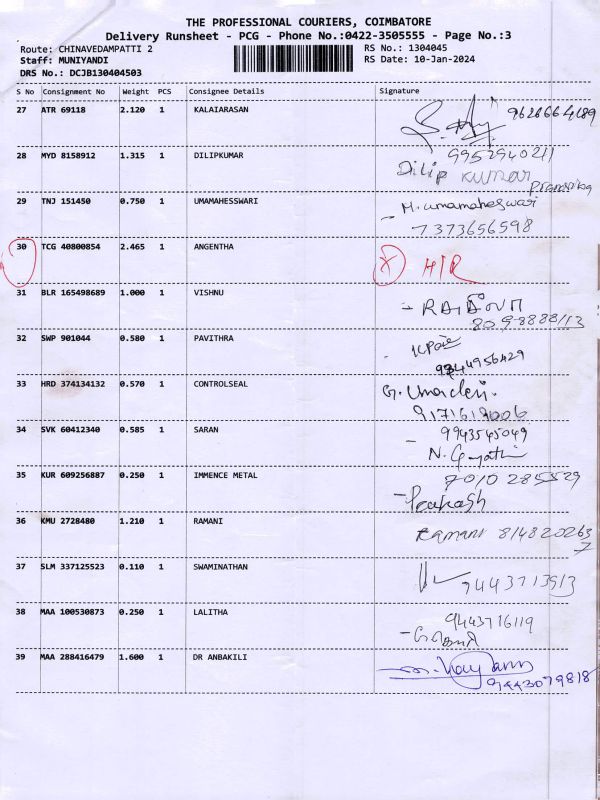 THE PROFESSIONAL COURIERS, COIMBATORE
Delivery Runsheet - PCG - Phone No.:0422-3505555 - Page No.:3
Route: CHINAVEDAMPATTI 2 RS No.: 1304045
Staff: MUNIYANDI RS Date: 10-Jan-2024
DRS No.: DCJB130404503
S No Consignment No Weight PCS Consignee Details Signature
27 ATR 69118 2.120 1 KALAIARASAN
28 MYD 8158912 1.315 1 DILIPKUMAR 9952940211
Dilip kumar
29 TNJ 151450 0.750 1 UMAMAHESSWARI M. umamaheswari
7373656598
30 TCG 40800854 2.465 1 ANGENTHA
31 BLR 165498689 1.000 1 VISHNU
32 SWP 901044 0.580 1 PAVITHRA
9344956429
33 HRD 374134132 0.570 1 CONTROLSEAL
9171619006
34 SVK 60412340 0.585 1 SARAN 9943545049
35 KUR 609256887 0.250 1 IMMENCE METAL 7010285529
Prakash
36 KMU 2728480 1.210 1 RAMANI Ramani 814820263
7
37 SLM 337125523 0.110 1 SWAMINATHAN 7443713913
38 MAA 100530873 0.250 1 LALITHA 9443716119
39 MAA 288416479 1.600 1 DR ANBAKILI
9443079818